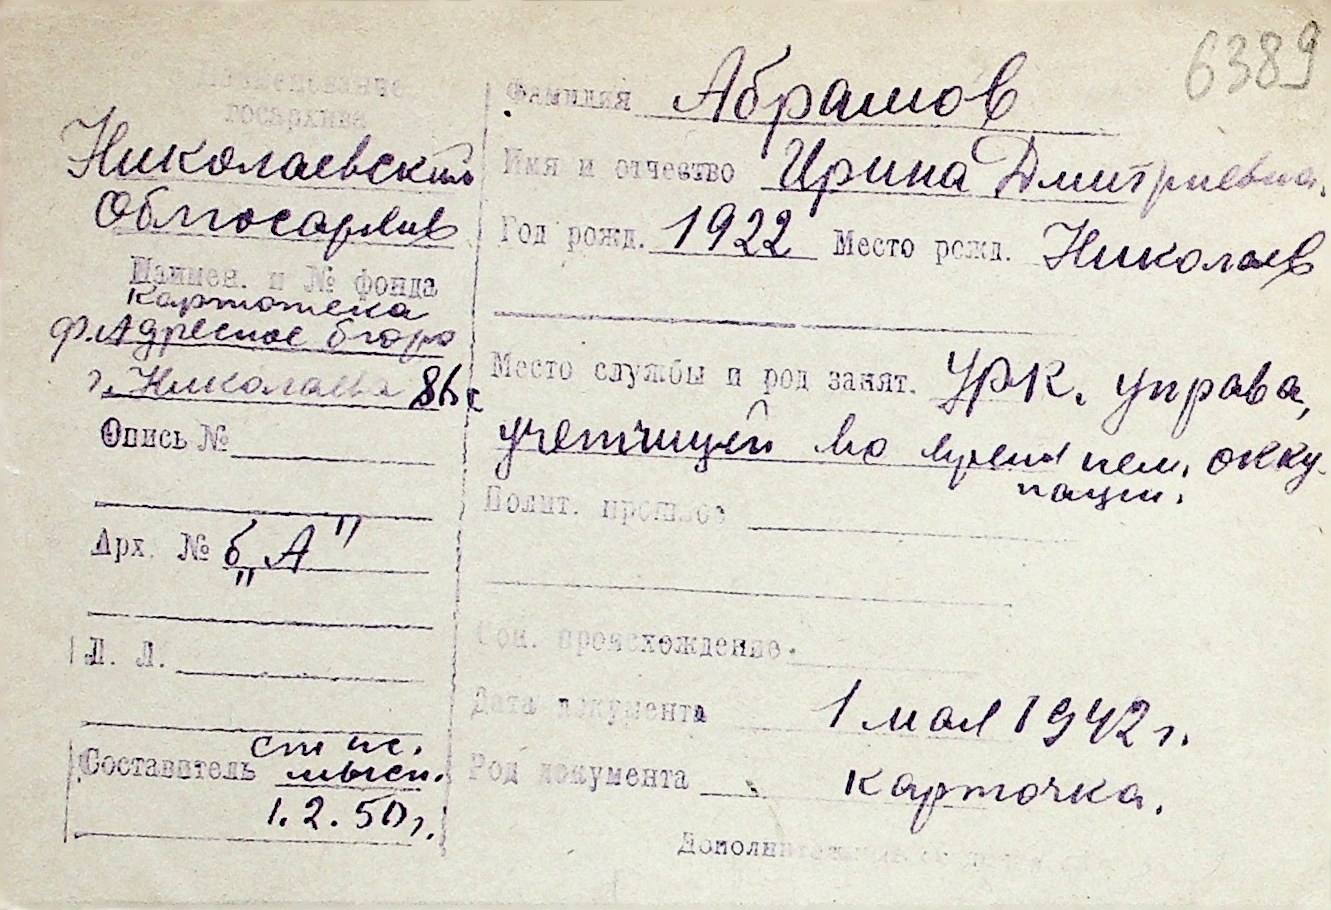 6389
Наименование
госархива
Николаевский
Облгосархив
Наимен. и № фонда
картотека
ф. Адресное бюро
г. Николаева
Опись №
Арх. № б „А"
Л. Л.
Составитель
1.2.50 г.
Фамилия Абрамов
Имя и отчество Ирина Дмитриевна.
Год рожд. 1922 Место рожд. Николаев
Место службы и род занят. УРК. управа,
учетчицей во время нем. окку-
пации.
Полит. прошлое
Соц. происхождение.
Дата документа 1 мая 1942 г.
Род документа карточка.
Дополнительные